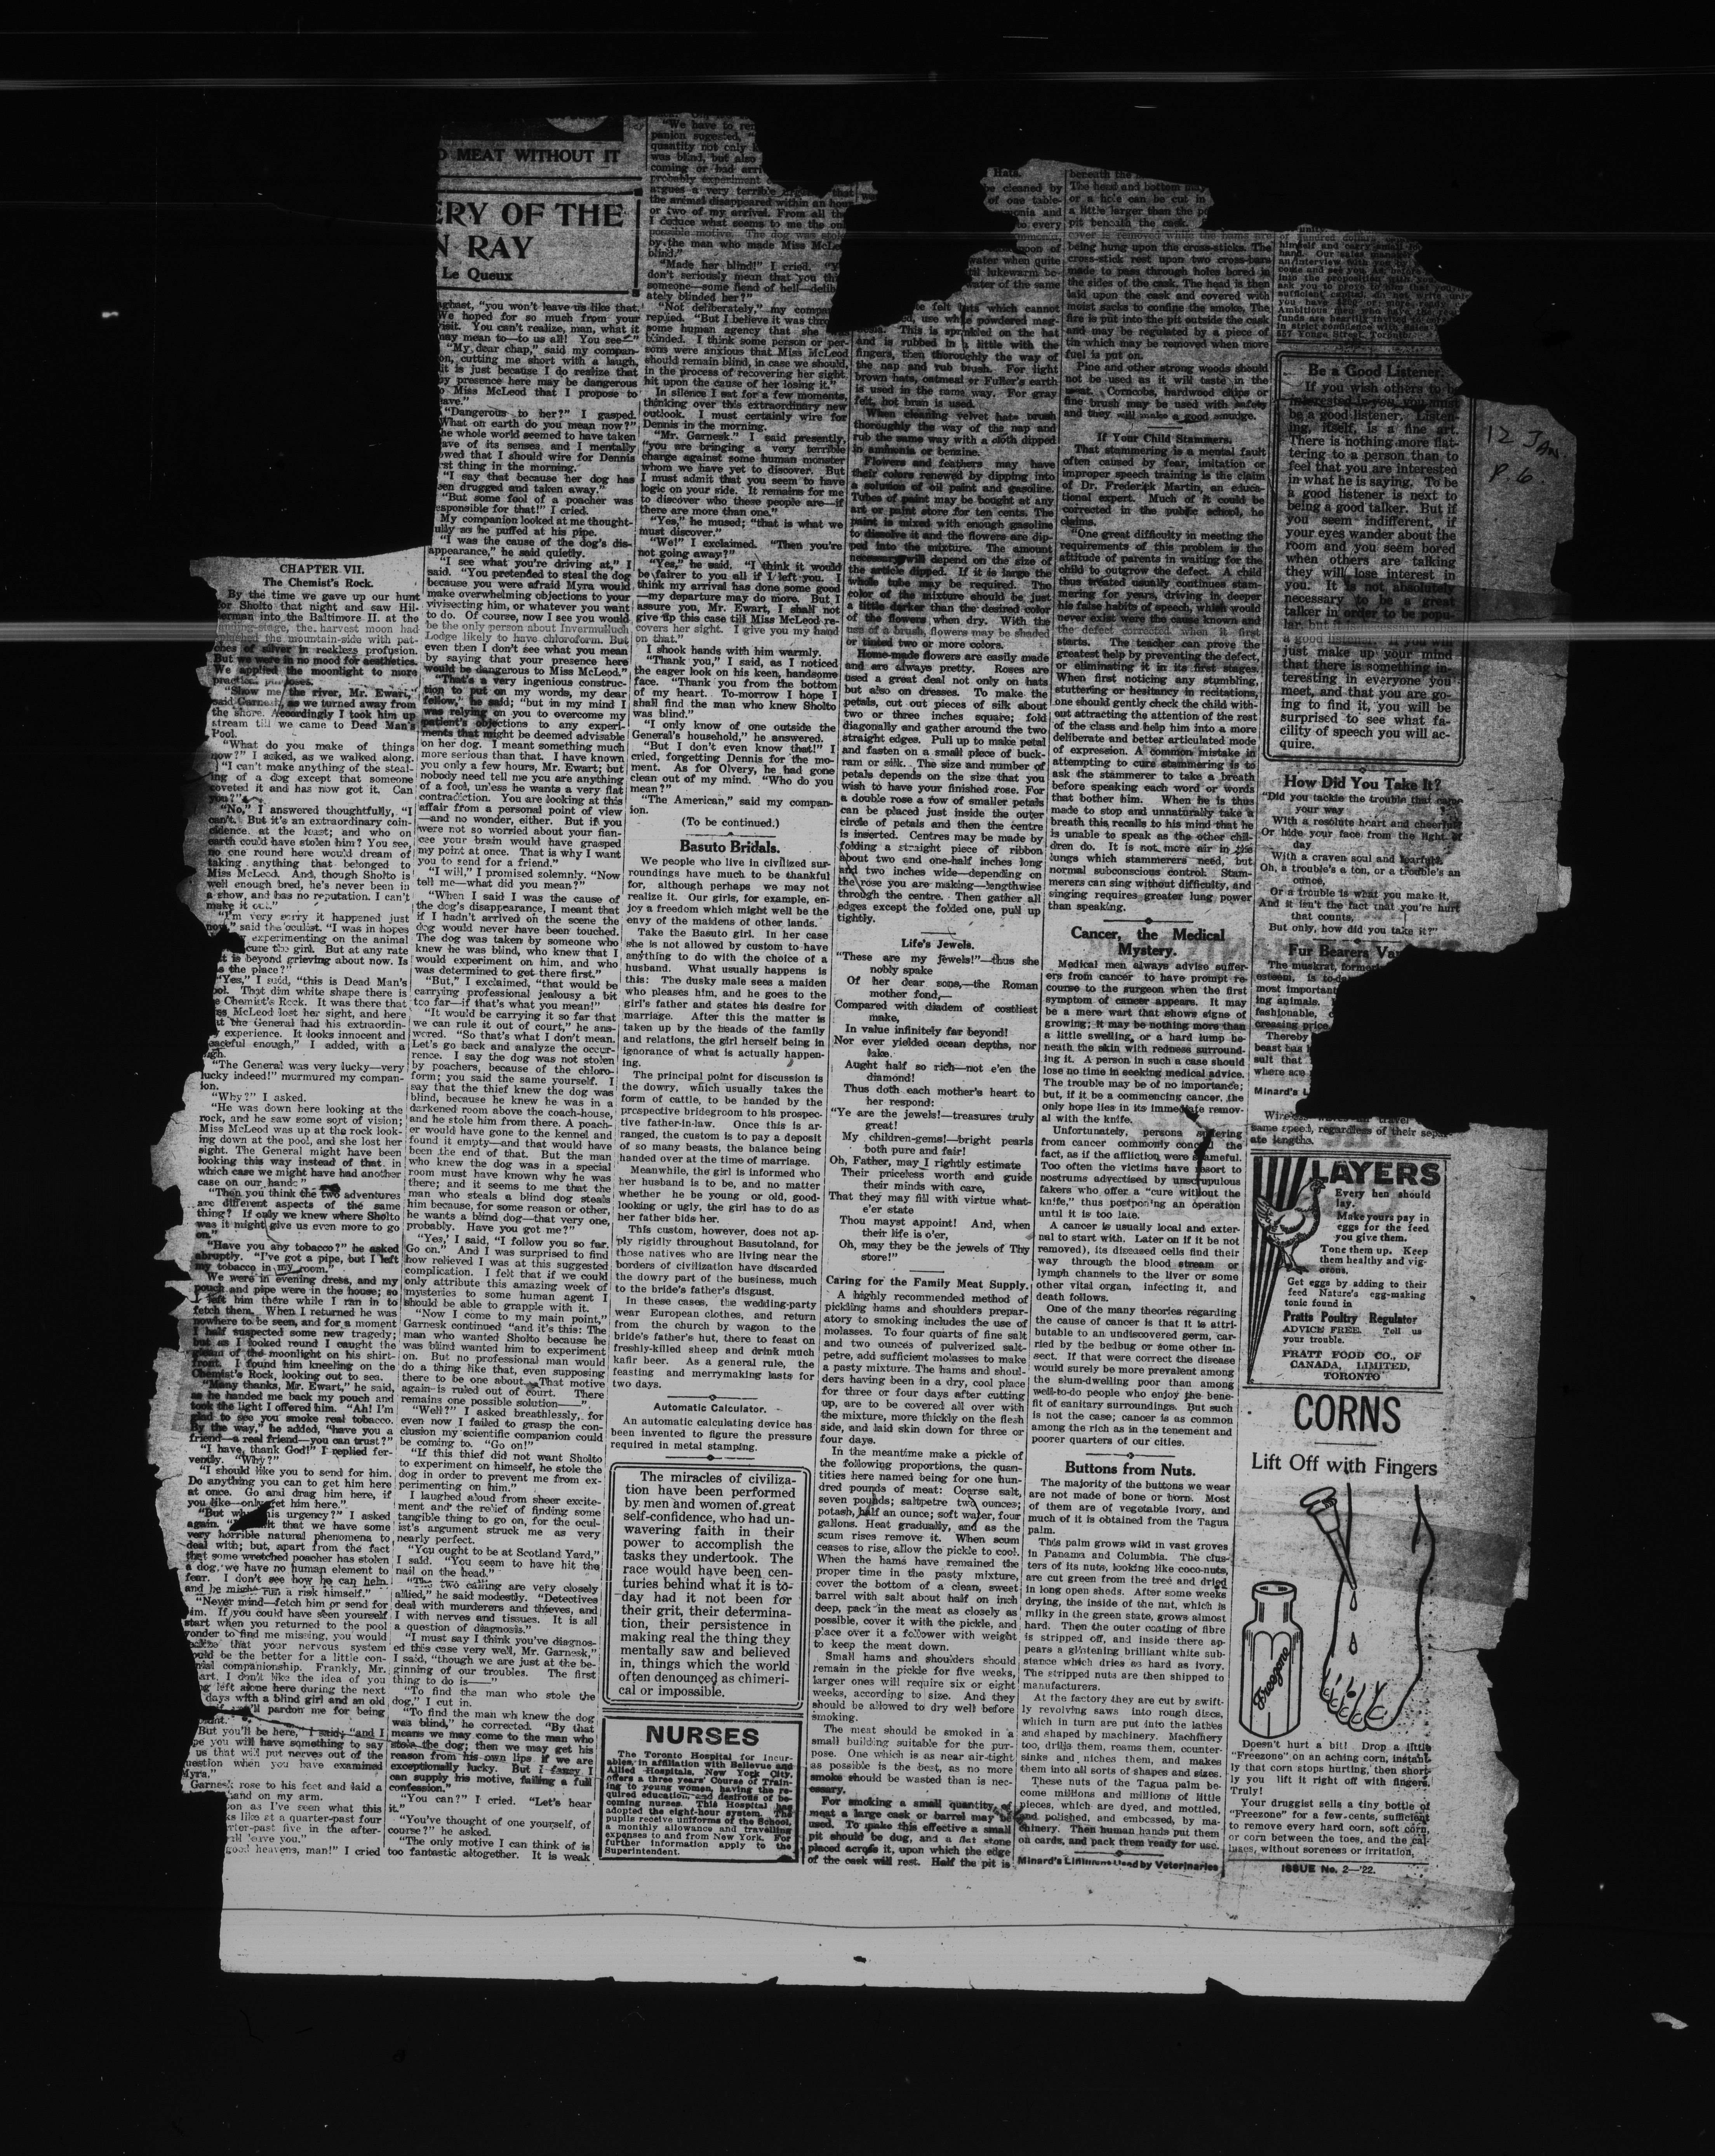 MEAT WITHOUT IT
ERY OF THE
N RAY
Le Queux
CHAPTER VII.
The Chemist's Rock.
By the time we gave up our hunt
for Sholto that night and saw Hil-
derman into the Baltimore II. at the
landing-stage, the harvest moon had
the mountain-side with pat-
ches of silver in reckless profusion.
But we were in no mood for aesthetics.
We applied the moonlight to more
practical purposes.
"Show me the river, Mr. Ewart,"
said Garnesk, as we turned away from
the shore. Accordingly I took him up
stream till we came to Dead Man's
Pool.
"What do you make of things
now?" I asked, as we walked along.
"I can't make anything of the steal-
ing of a dog except that someone
coveted it and has now got it. Can
you?"
"No," I answered thoughtfully, "I
can't. But it's an extraordinary coin-
cidence, at the least; and who on
earth could have stolen him? You see,
no one round here would dream of
taking anything that belonged to
Miss McLeod. And, though Sholto is
well enough bred, he's never been in
a show, and has no reputation. I can't
make it out."
"I'm very sorry it happened just
now," said the oculist. "I was in hopes
experimenting on the animal
cure the girl. But at any rate
it is beyond grieving about now. Is
this the place?"
"Yes," I said, "this is Dead Man's
Pool. That dim white shape there is
the Chemist's Rock. It was there that
Miss McLeod lost her sight, and here
that the General had his extraordin-
ary experience. It looks innocent and
peaceful enough," I added, with a
sigh.
"The General was very lucky—very
lucky indeed!" murmured my compan-
ion.
"Why?" I asked.
"He was down here looking at the
rock, and he saw some sort of vision;
Miss McLeod was up at the rock look-
ing down at the pool, and she lost her
sight. The General might have been
looking this way instead of that, in
which case we might have had another
case on our hands."
"Then you think the two adventures
are different aspects of the same
thing? If only we knew where Sholto
was it might give us even more to go
on."
"Have you any tobacco?" he asked
abruptly. "I've got a pipe, but I left
my tobacco in my room."
We were in evening dress, and my
pouch and pipe were in the house; so
I left him there while I ran in to
fetch them. When I returned he was
nowhere to be seen, and for a moment
I half suspected some new tragedy;
but as I looked round I caught the
gleam of the moonlight on his shirt-
front. I found him kneeling on the
Chemist's Rock, looking out to sea.
"Many thanks, Mr. Ewart," he said,
as he handed me back my pouch and
took the light I offered him. "Ah! I'm
glad to see you smoke real tobacco.
By the way," he added, "have you a
friend—a real friend—you can trust?"
"I have, thank God!" I replied fer-
vently. "Why?"
"I should like you to send for him.
Do anything you can to get him here
at once. Go and drag him here, if
you like—only get him here."
"But why this urgency?" I asked
again. that we have some
very horrible natural phenomena to
deal with; but, apart from the fact
that some wretched poacher has stolen
a dog, we have no human element to
fear. I don't see how he can help,
and he might run a risk himself."
"Never mind—fetch him or send for
him. If you could have seen yourself
start when you returned to the pool
yonder to find me missing, you would
realize that your nervous system
would be the better for a little con-
genial companionship. Frankly, Mr.
Ewart, I don't like the idea of you
being left alone here during the next
days with a blind girl and an old
you'll pardon me for being
blunt."
"But you'll be here," I said; "and I
hope you will have something to say
to us that will put nerves out of the
question when you have examined
Myra."
Garnesk rose to his feet and laid a
hand on my arm.
soon as I've seen what this
looks like at a quarter-past four
quarter-past five in the after-
I shall leave you."
good heavens, man!" I cried
aghast, "you won't leave us like that.
We hoped for so much from your
visit. You can't realize, man, what it
may mean to—to us all! You see—"
"My dear chap," said my compan-
ion, cutting me short with a laugh,
"it is just because I do realize that
my presence here may be dangerous
to Miss McLeod that I propose to
leave."
"Dangerous to her?" I gasped.
"What on earth do you mean now?"
The whole world seemed to have taken
leave of its senses, and I mentally
vowed that I should wire for Dennis
first thing in the morning.
"I say that because her dog has
been drugged and taken away."
"But some fool of a poacher was
responsible for that!" I cried.
My companion looked at me thought-
fully as he puffed at his pipe.
"I was the cause of the dog's dis-
appearance," he said quietly.
"I see what you're driving at," I
said. "You pretended to steal the dog
because you were afraid Myra would
make overwhelming objections to your
vivisecting him, or whatever you want
to do. Of course, now I see you would
be the only person about Invermalluch
Lodge likely to have chloroform. But
even then I don't see what you mean
by saying that your presence here
would be dangerous to Miss McLeod."
"That's a very ingenious construc-
tion to put on my words, my dear
fellow," he said; "but in my mind I
was relying on you to overcome my
patient's objections to any experi-
ments that might be deemed advisable
on her dog. I meant something much
more serious than that. I have known
you only a few hours, Mr. Ewart; but
nobody need tell me you are anything
of a fool, unless he wants a very flat
contradiction. You are looking at this
affair from a personal point of view
—and no wonder, either. But if you
were not so worried about your fian-
cee your brain would have grasped
my point at once. That is why I want
you to send for a friend."
"I will," I promised solemnly. "Now
tell me—what did you mean?"
"When I said I was the cause of
the dog's disappearance, I meant that
if I hadn't arrived on the scene the
dog would never have been touched.
The dog was taken by someone who
knew he was blind, who knew that I
would experiment on him, and who
was determined to get there first."
"But," I exclaimed, "that would be
carrying professional jealousy a bit
too far—if that's what you mean!"
"It would be carrying it so far that
we can rule it out of court," he ans-
wered. "So that's what I don't mean.
Let's go back and analyze the occur-
rence. I say the dog was not stolen
by poachers, because of the chloro-
form; you said the same yourself. I
say that the thief knew the dog was
blind, because he knew he was in a
darkened room above the coach-house,
and he stole him from there. A poach-
er would have gone to the kennel and
found it empty—and that would have
been the end of that. But the man
who knew the dog was in a special
room must have known why he was
there; and it seems to me that the
man who steals a blind dog steals
him because, for some reason or other,
he wants a blind dog—that very one,
probably. Have you got me?"
"Yes,' I said, "I follow you so far.
Go on." And I was surprised to find
how relieved I was at this suggested
complication. I felt that if we could
only attribute this amazing week of
mysteries to some human agent I
should be able to grapple with it.
"Now I come to my main point,"
Garnesk continued "and it's this: The
man who wanted Sholto because he
was blind wanted him to experiment
on. But no professional man would
do a thing like that, even supposing
there to be one about. That motive
again is ruled out of court. There
remains one possible solution——".
"Well?" I asked breathlessly, for
even now I failed to grasp the con-
clusion my scientific companion could
be coming to. "Go on!"
"If this thief did not want Sholto
to experiment on himself, he stole the
dog in order to prevent me from ex-
perimenting on him."
I laughed aloud from sheer excite-
ment and the relief of finding some
tangible thing to go on, for the ocul-
ist's argument struck me as very
nearly perfect.
"You ought to be at Scotland Yard,"
I said. "You seem to have hit the
nail on the head."
"The two calling are very closely
allied," he said modestly. "Detectives
deal with murderers and thieves, and
I with nerves and tissues. It is all
a question of diagnosis."
"I must say I think you've diagnos-
ed this case very well, Mr. Garnesk,"
I said, "though we are just at the be-
ginning of our troubles. The first
thing to do is——"
"To find the man who stole the
dog," I cut in.
"To find the man wh knew the dog
was blind," he corrected. "By that
means we may come to the man who
stole the dog; then we may get his
reason from his own lips if we are
exceptionally lucky. But I fancy I
can supply his motive, failing a full
confession."
"You can?" I cried. "Let's hear
it."
"You've thought of one yourself, of
course?" he asked.
"The only motive I can think of is
too fantastic altogether. It is weak
"We have to
panion suggested,
quantity not only
was blind, but also
coming or had arri
probably experiment
argues a very terrible that
the animal disappeared within an hour
or two of my arrival. From all this
I deduce what seems to me the only
possible motive. The dog was stolen
by the man who made Miss McLeod
blind."
"Made her blind!" I cried.
don't seriously mean that you think
someone—some fiend of hell—delib-
ately blinded her?"
"Not deliberately," my companion
replied. "But I believe it was through
some human agency that she
blinded. I think some person or per-
sons were anxious that Miss McLeod
should remain blind, in case we should,
in the process of recovering her sight,
hit upon the cause of her losing it."
In silence I sat for a few moments,
thinking over this extraordinary new
outlook. I must certainly wire for
Dennis in the morning.
"Mr. Garnesk." I said presently,
"you are bringing a very terrible
charge against some human monster
whom we have yet to discover. But
I must admit that you seem to have
logic on your side. It remains for me
to discover who these people are—if
there are more than one."
"Yes," he mused; "that is what we
must discover."
"We!" I exclaimed. "Then you're
not going away?"
"Yes," he said. "I think it would
be fairer to you all if I left you. I
think my arrival has done some good
—my departure may do more. But I
assure you, Mr. Ewart, I shall not
give up this case till Miss McLeod re-
covers her sight. I give you my hand
on that."
I shook hands with him warmly.
"Thank you," I said, as I noticed
the eager look on his keen, handsome
face. "Thank you from the bottom
of my heart. To-morrow I hope I
shall find the man who knew Sholto
was blind."
"I only know of one outside the
General's household," he answered.
"But I don't even know that!" I
cried, forgetting Dennis for the mo-
ment. As for Olvery, he had gone
clean out of my mind. "Who do you
mean?"
"The American," said my compan-
ion.
(To be continued.)
Basuto Bridals.
We people who live in civilized sur-
roundings have much to be thankful
for, although perhaps we may not
realize it. Our girls, for example, en-
joy a freedom which might well be the
envy of the maidens of other lands.
Take the Basuto girl. In her case
she is not allowed by custom to have
anything to do with the choice of a
husband. What usually happens is
this: The dusky male sees a maiden
who pleases him, and he goes to the
girl's father and states his desire for
marriage. After this the matter is
taken up by the heads of the family
and relations, the girl herself being in
ignorance of what is actually happen-
ing.
The principal point for discussion is
the dowry, which usually takes the
form of cattle, to be handed by the
prospective bridegroom to his prospec-
tive father-in-law. Once this is ar-
ranged, the custom is to pay a deposit
of so many beasts, the balance being
handed over at the time of marriage.
Meanwhile, the girl is informed who
her husband is to be, and no matter
whether he be young or old, good-
looking or ugly, the girl has to do as
her father bids her.
This custom, however, does not ap-
ply rigidly throughout Basutoland, for
those natives who are living near the
borders of civilization have discarded
the dowry part of the business, much
to the bride's father's disgust.
In these cases, the wedding-party
wear European clothes, and return
from the church by wagon to the
bride's father's hut, there to feast on
freshly-killed sheep and drink much
kafir beer. As a general rule, the
feasting and merrymaking lasts for
two days.
Automatic Calculator.
An automatic calculating device has
been invented to figure the pressure
required in metal stamping.
The miracles of civiliza-
tion have been performed
by men and women of great
self-confidence, who had un-
wavering faith in their
power to accomplish the
tasks they undertook. The
race would have been cen-
turies behind what it is to-
day had it not been for
their grit, their determina-
tion, their persistence in
making real the thing they
mentally saw and believed
in, things which the world
often denounced as chimeri-
cal or impossible.
NURSES
The Toronto Hospital for Incur-
ables, in affiliation with Bellevue and
Allied Hospitals, New York City,
offers a three years' Course of Train-
ing to young women, having the re-
quired education, and desirous of be-
coming nurses. This Hospital has
adopted the eight-hour system. The
pupils receive uniforms of the School,
a monthly allowance and travelling
expenses to and from New York. For
further information apply to the
Superintendent.
Hats.
be cleaned by
of one table-
ammonia and
to every
spoon of
water when quite
til lukewarm be-
water of the same
felt hats which cannot
use white powdered mag-
nesia. This is sprinkled on the hat
and is rubbed in a little with the
fingers, then thoroughly the way of
the nap and rub brush. For light
brown hats, oatmeal or Fuller's earth
is used in the same way. For gray
felt, hot bran is used.
When cleaning velvet hats brush
thoroughly the way of the nap and
rub the same way with a cloth dipped
in ammonia or benzine.
Flowers and feathers may have
their colors renewed by dipping into
a solution of oil paint and gasoline.
Tubes of paint may be bought at any
art or paint store for ten cents. The
paint is mixed with enough gasoline
to dissolve it and the flowers are dip-
ped into the mixture. The amount
necessary will depend on the size of
the article dipped. If it is large the
whole tube may be required. The
color of the mixture should be just
a little darker than the desired color
of the flowers when dry. With the
use of a brush, flowers may be shaded
or tinted two or more colors.
Home-made flowers are easily made
and are always pretty. Roses are
used a great deal not only on hats
but also on dresses. To make the
petals, cut out pieces of silk about
two or three inches square; fold
diagonally and gather around the two
straight edges. Pull up to make petal
and fasten on a small piece of buck-
ram or silk. The size and number of
petals depends on the size that you
wish to have your finished rose. For
a double rose a row of smaller petals
can be placed just inside the outer
circle of petals and then the centre
is inserted. Centres may be made by
folding a straight piece of ribbon
about two and one-half inches long
and two inches wide—depending on
the rose you are making—lengthwise
through the centre. Then gather all
edges except the folded one, pull up
tightly.
Life's Jewels.
"These are my jewels!"—thus she
nobly spake
Of her dear sons,—the Roman
mother fond,—
Compared with diadem of costliest
make,
In value infinitely far beyond!
Nor ever yielded ocean depths, nor
lake.
Aught half so rich—not e'en the
diamond!
Thus doth each mother's heart to
her respond:
"Ye are the jewels!—treasures truly
great!
My children-gems!—bright pearls
both pure and fair!
Oh, Father, may I rightly estimate
Their priceless worth and guide
their minds with care,
That they may fill with virtue what-
e'er state
Thou mayst appoint! And, when
their life is o'er,
Oh, may they be the jewels of Thy
store!"
Caring for the Family Meat Supply.
A highly recommended method of
pickling hams and shoulders prepar-
atory to smoking includes the use of
molasses. To four quarts of fine salt
and two ounces of pulverized salt-
petre, add sufficient molasses to make
a pasty mixture. The hams and shoul-
ders having been in a dry, cool place
for three or four days after cutting
up, are to be covered all over with
the mixture, more thickly on the flesh
side, and laid skin down for three or
four days.
In the meantime make a pickle of
the following proportions, the quan-
tities here named being for one hun-
dred pounds of meat: Coarse salt,
seven pounds; saltpetre two ounces;
potash, half an ounce; soft water, four
gallons. Heat gradually, and as the
scum rises remove it. When scum
ceases to rise, allow the pickle to cool.
When the hams have remained the
proper time in the pasty mixture,
cover the bottom of a clean, sweet
barrel with salt about half on inch
deep, pack in the meat as closely as
possible, cover it with the pickle, and
place over it a follower with weight
to keep the meat down.
Small hams and shoulders should
remain in the pickle for five weeks,
larger ones will require six or eight
weeks, according to size. And they
should be allowed to dry well before
smoking.
The meat should be smoked in a
small building suitable for the pur-
pose. One which is as near air-tight
as possible is the best, as no more
smoke should be wasted than is nec-
essary.
For smoking a small quantity of
meat a large cask or barrel may be
used. To make this effective a small
pit should be dug, and a flat stone
placed across it, upon which the edge
of the cask will rest. Half the pit is
beneath the
The head and bottom may
or a hole can be cut in
a little larger than the
pit beneath the cask.
cover is removed while the hams are
being hung upon the cross-sticks. The
cross-stick rest upon two cross-bars
made to pass through holes bored in
the sides of the cask. The head is then
laid upon the cask and covered with
moist sacks to confine the smoke. The
fire is put into the pit outside the cask
and may be regulated by a piece of
tin which may be removed when more
fuel is put on.
Pine and other strong woods should
not be used as it will taste in the
meat. Corncobs, hardwood chips or
fine brush may be used with safety
and they will make a good smudge.
If Your Child Stammers.
That stammering is a mental fault
often caused by fear, imitation or
improper speech training is the claim
of Dr. Frederick Martin, an educa-
tional expert. Much of it could be
corrected in the public school, he
claims.
"One great difficulty in meeting the
requirements of this problem is the
attitude of parents in waiting for the
child to outgrow the defect. A child
thus treated usually continues stam-
mering for years, driving in deeper
his false habits of speech, which would
never exist were the cause known and
the defect corrected when it first
starts. The teacher can prove the
greatest help by preventing the defect,
or eliminating it in its first stages.
When first noticing any stumbling,
stuttering or hesitancy in recitations,
one should gently check the child with-
out attracting the attention of the rest
of the class and help him into a more
deliberate and better articulated mode
of expression. A common mistake in
attempting to cure stammering is to
ask the stammerer to take a breath
before speaking each word or words
that bother him. When he is thus
made to stop and unnaturally take a
breath this recalls to his mind that he
is unable to speak as the other chil-
dren do. It is not more air in the
lungs which stammerers need, but
normal subconscious control. Stam-
merers can sing without difficulty, and
singing requires greater lung power
than speaking.
Cancer, the Medical
Mystery.
Medical men always advise suffer-
ers from cancer to have prompt re-
course to the surgeon when the first
symptom of cancer appears. It may
be a mere wart that shows signs of
growing; it may be nothing more than
a little swelling, or a hard lump be-
neath the skin with redness surround-
ing it. A person in such a case should
lose no time in seeking medical advice.
The trouble may be of no importance;
but, if it be a commencing cancer, the
only hope lies in its immediate remov-
al with the knife.
Unfortunately, persons suffering
from cancer commonly conceal the
fact, as if the affliction were shameful.
Too often the victims have resort to
nostrums advertised by unscrupulous
fakers who offer a "cure without the
knife," thus postponing an operation
until it is too late.
A cancer is usually local and exter-
nal to start with. Later on if it be not
removed), its diseased cells find their
way through the blood stream or
lymph channels to the liver or some
other vital organ, infecting it, and
death follows.
One of the many theories regarding
the cause of cancer is that it is attri-
butable to an undiscovered germ, car-
ried by the bedbug or some other in-
sect. If that were correct the disease
would surely be more prevalent among
the slum-dwelling poor than among
well-to-do people who enjoy the bene-
fit of sanitary surroundings. But such
is not the case; cancer is as common
among the rich as in the tenement and
poorer quarters of our cities.
Buttons from Nuts.
The majority of the buttons we wear
are not made of bone or horn. Most
of them are of vegetable ivory, and
much of it is obtained from the Tagua
palm.
This palm grows wild in vast groves
in Panama and Columbia. The clus-
ters of its nuts, looking like coco-nuts,
are cut green from the tree and dried
in long open sheds. After some weeks
drying, the inside of the nut, which is
milky in the green state, grows almost
hard. Then the outer coating of fibre
is stripped off, and inside there ap-
pears a glistening brilliant white sub-
stance which dries as hard as ivory.
The stripped nuts are then shipped to
manufacturers.
At the factory they are cut by swift-
ly revolving saws into rough discs,
which in turn are put into the lathes
and shaped by machinery. Machinery
too, drills them, reams them, counter-
sinks and niches them, and makes
them into all sorts of shapes and sizes.
These nuts of the Tagua palm be-
come millions and millions of little
pieces, which are dyed, and mottled,
and polished, and embossed, by ma-
chinery. Then human hands put them
on cards, and pack them ready for use.
Minard's Liniment Used by Veterinaries
himself and carry
hand. Our sales manager
an interview with you
come and see you
into the proposition with you
ask you to prove to him that you
sufficient capital. Do not write
you have $500 or more ready
Ambitious men who have
funds are heartily invited to
in strict confidence with Sales
257 Yonge Street, Toronto.
Be a Good Listener.
If you wish others to be
interested in you, you must
be a good listener. Listen-
ing, itself, is a fine art.
There is nothing more flat-
tering to a person than to
feel that you are interested
in what he is saying. To be
a good listener is next to
being a good talker. But if
you seem indifferent, if
your eyes wander about the
room and you seem bored
when others are talking
they will lose interest in
you. It is not absolutely
necessary to be a great
talker in order to be popu-
lar, but
a good listener. If you will
just make up your mind
that there is something in-
teresting in everyone you
meet, and that you are go-
ing to find it, you will be
surprised to see what fa-
cility of speech you will ac-
quire.
12 Jan.
P. 6
How Did You Take It?
"Did you tackle the trouble that came
your way
With a resolute heart and cheerful,
Or hide your face from the light of
day
With a craven soul and fearful?
Oh, a trouble's a ton, or a trouble's an
ounce,
Or a trouble is what you make it,
And it isn't the fact that you're hurt
that counts,
But only, how did you take it?"
Fur Bearers
The muskrat, formerly
esteem, is to-day
most important
ing animals.
fashionable,
creasing price
Thereby
beast has
sult that
where are
Minard's L
travel
same speed, regardless of their separ-
ate lengths.
LAYERS
Every hen should
lay.
Make yours pay in
eggs for the feed
you give them.
Tone them up. Keep
them healthy and vig-
orous.
Get eggs by adding to their
feed Nature's egg-making
tonic found in
Pratts Poultry Regulator
ADVICE FREE. Tell us
your trouble.
PRATT FOOD CO., OF
CANADA, LIMITED,
TORONTO
CORNS
Lift Off with Fingers
Freezone
Doesn't hurt a bit! Drop a little
"Freezone" on an aching corn, instant-
ly that corn stops hurting, then short-
ly you lift it right off with fingers.
Truly!
Your druggist sells a tiny bottle of
"Freezone" for a few cents, sufficient
to remove every hard corn, soft corn,
or corn between the toes, and the cal-
luses, without soreness or irritation.
ISSUE No. 2—'22.